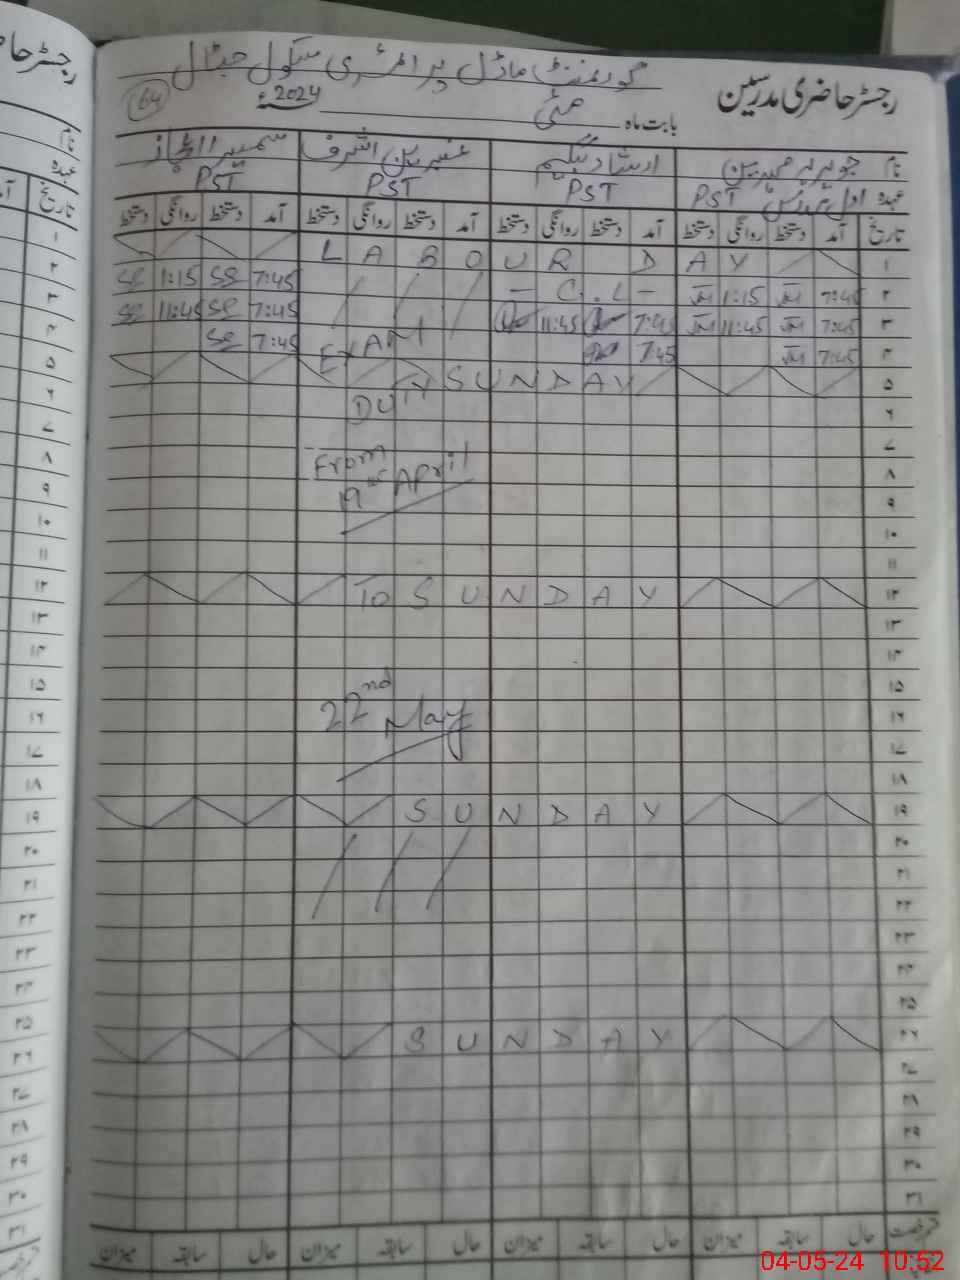 رجسٹر حاضری مدرسین
گورنمنٹ ماڈل پرائمری سکول جٹال
64
بابت ماہ مئی 2024ء
نام جویریہ مہرین ارشاد بیگم عنبرین اشرف سمیرا
عہدہ PST PST PST PST
تاریخ آمد دستخط روانگی دستخط آمد دستخط روانگی دستخط آمد دستخط روانگی دستخط آمد دستخط روانگی دستخط
۱ LABOUR DAY
۲ 7:45 1:15 - C.L - 7:45 1:15
۳ 7:45 11:45 7:45 11:45 7:45 11:45
۴ 7:45 7:45 EXAM 7:45
۵ SUNDAY
۶ DUTY
۷
۸ From
۹ 19th April
۱۰
۱۱
۱۲ TO SUNDAY
۱۳
۱۴
۱۵
۱۶ 22nd May
۱۷
۱۸
۱۹ SUNDAY
۲۰
۲۱
۲۲
۲۳
۲۴
۲۵
۲۶ SUNDAY
۲۷
۲۸
۲۹
۳۰
۳۱
قسم رخصت حال سابقہ میزان حال سابقہ میزان حال سابقہ میزان حال سابقہ میزان
04-05-24 10:52